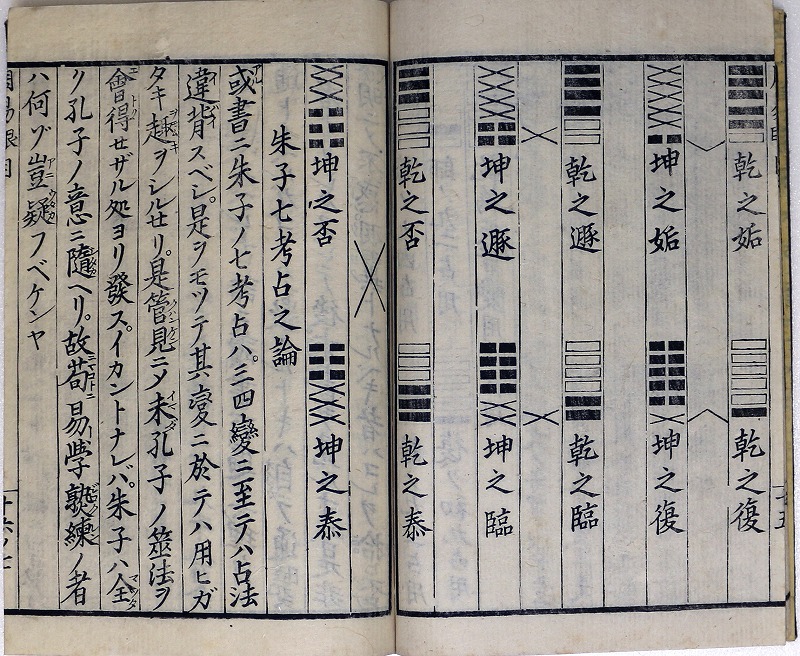 乾之姤
乾之復
坤之姤
坤之復
乾之遯
乾之臨
坤之遯
坤之臨
乾之否
乾之泰
坤之否
坤之泰
朱子七考占之論
或書ニ朱子ノ七考占ハ。三四變ニ至テハ占法
違背スベシ。是ヲモツテ其變ニ於テハ用ヒガ
タキ趣ヲシルセリ。是管見ニメ未孔子ノ筮法ヲ
會得セザル処ヨリ發ス。イカントナレバ。朱子ハ全
ク孔子ノ意ニ隨ヘリ。故苟易學熟練ノ者
ハ何ゾ豈疑フベケンヤ